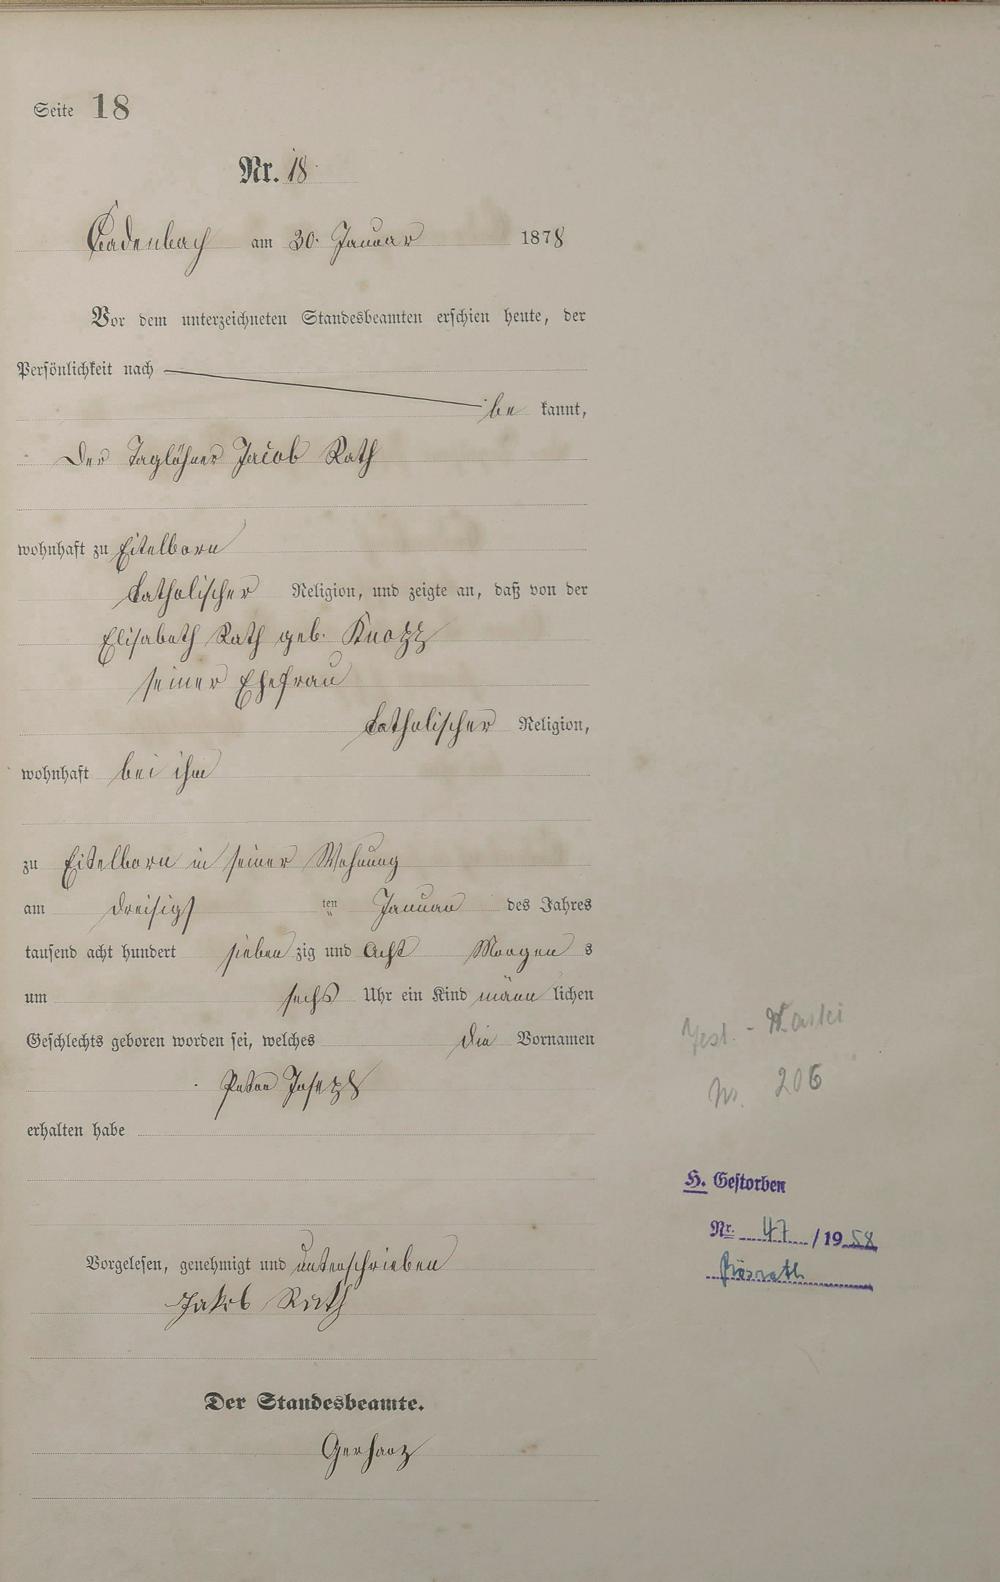 Seite 18
Nr. 18
Cadenbach am 30. Januar 1878
Vor dem unterzeichneten Standesbeamten erschien heute, der
Persönlichkeit nach
be kannt,
Der Taglöhner Jacob Rath
wohnhaft zu Eitelborn
katholischer Religion, und zeigte an, daß von der
Elisabeth Rath geb. Knopp
seiner Ehefrau
katholischer Religion,
wohnhaft bei ihm
zu Eitelborn in seiner Wohnung
am dreisigs ten Januar des Jahres
tausend acht hundert sieben zig und Acht Morgen s
um sechs Uhr ein Kind männ lichen
Geschlechts geboren worden sei, welches die Vornamen
Peter Joseph
erhalten habe
Vorgelesen, genehmigt und unterschrieben
Jakob Rath
Der Standesbeamte.
Gerharz
Nr. 206
H. Gestorben
Nr. 47 / 19 58
Rösrath